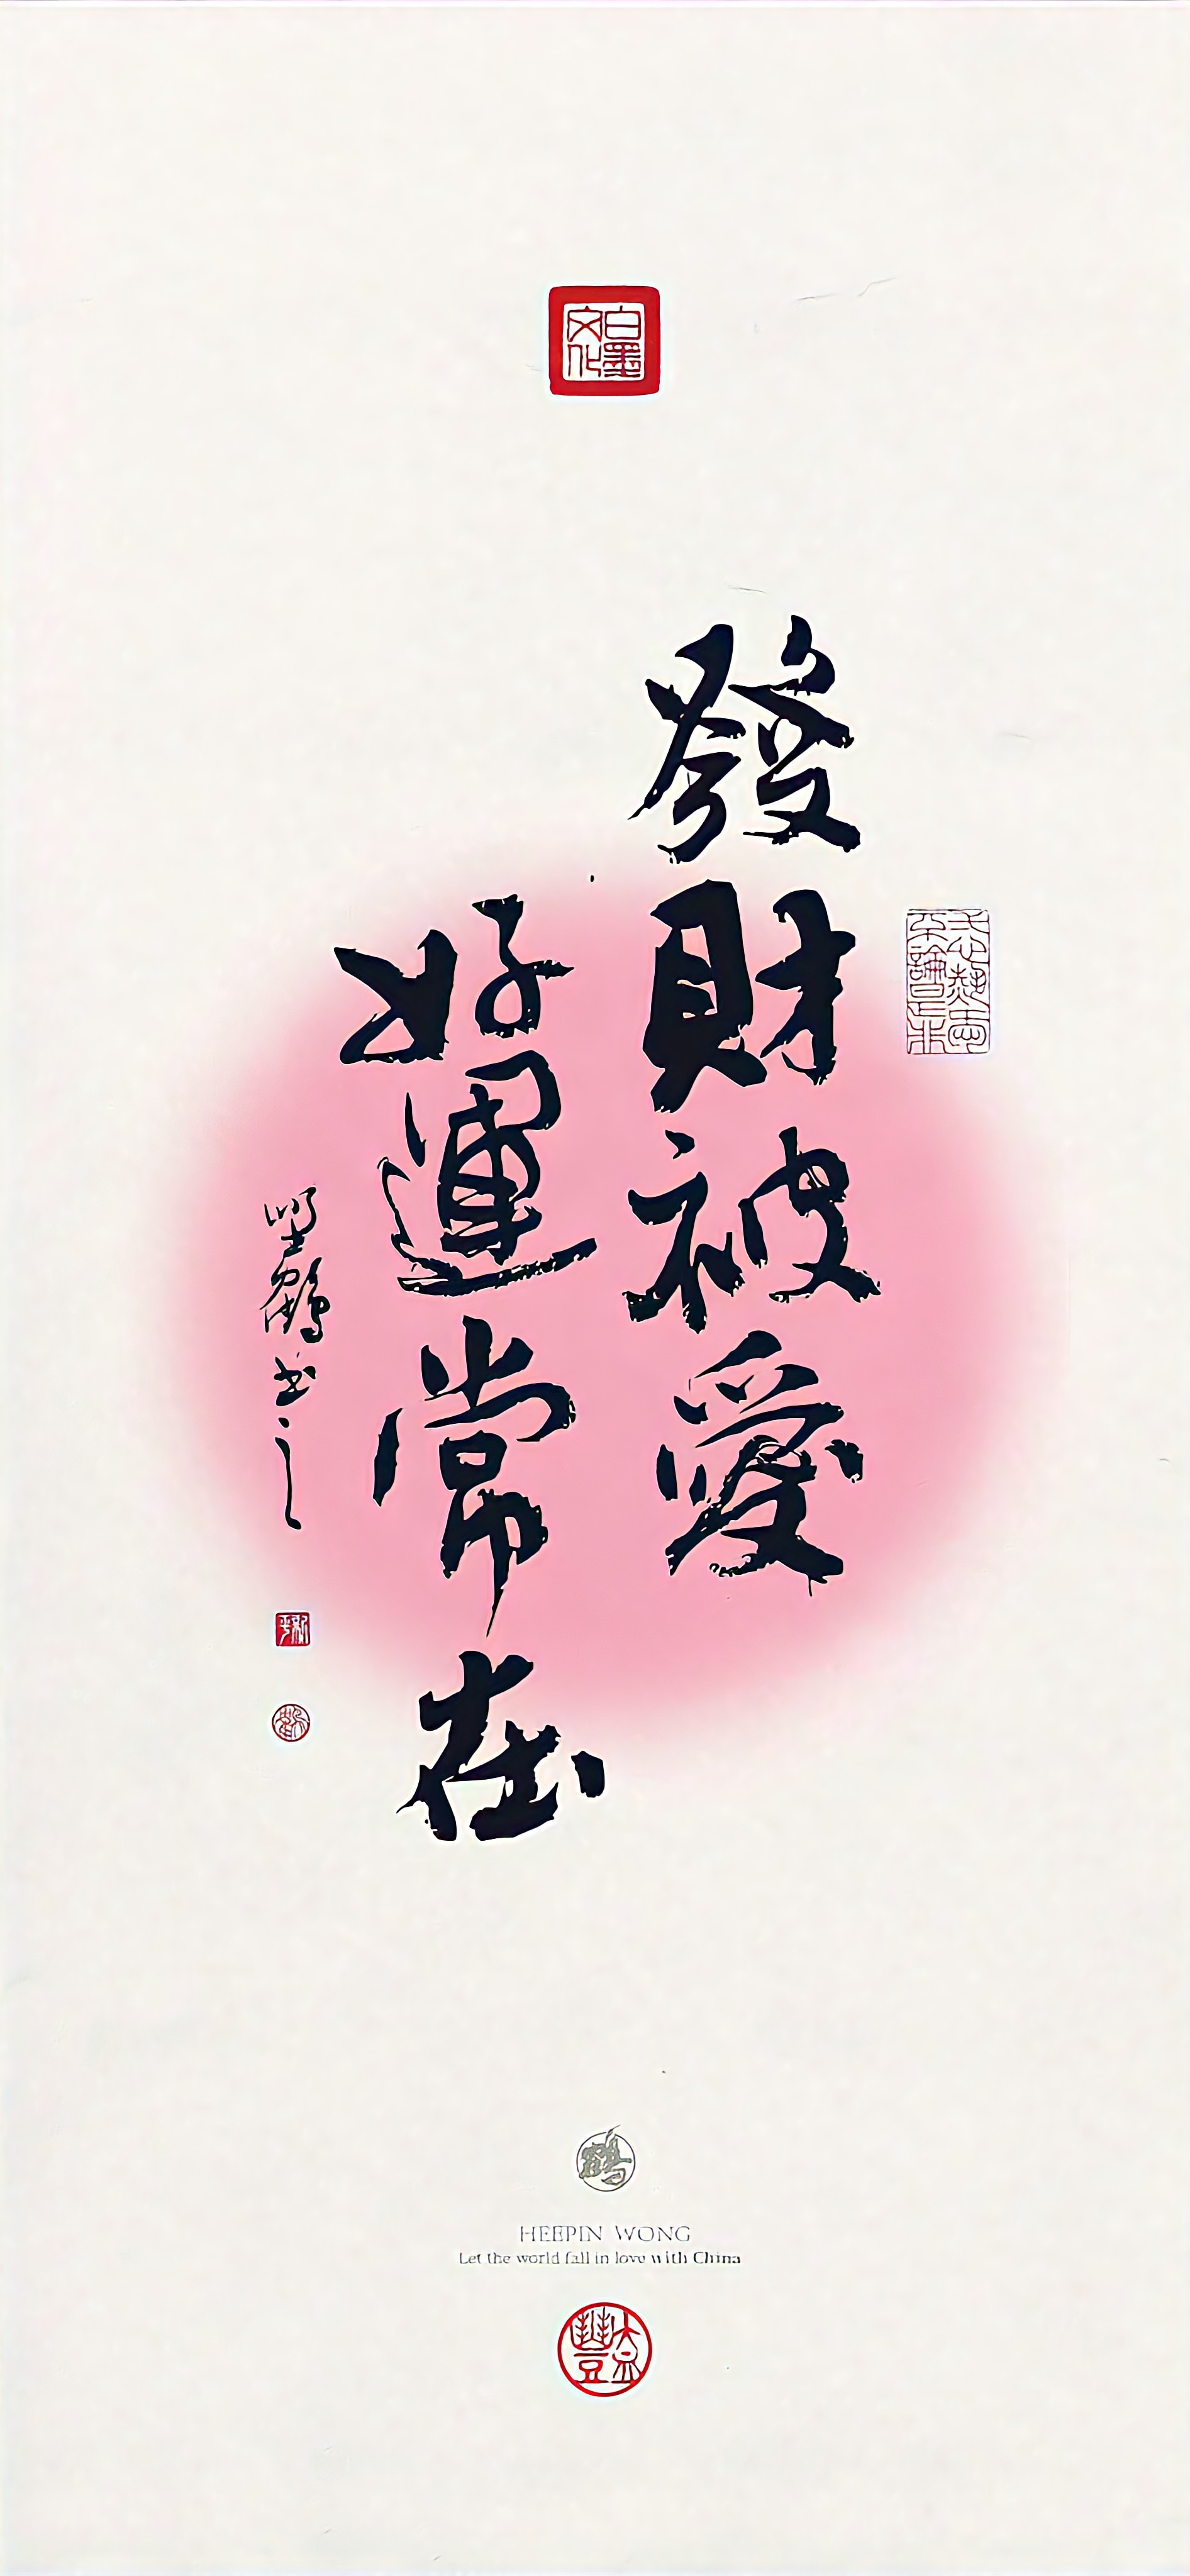 白墨文化
發財被愛
好運常在
鶴
HEEPIN WONG
Let the world fall in love with China